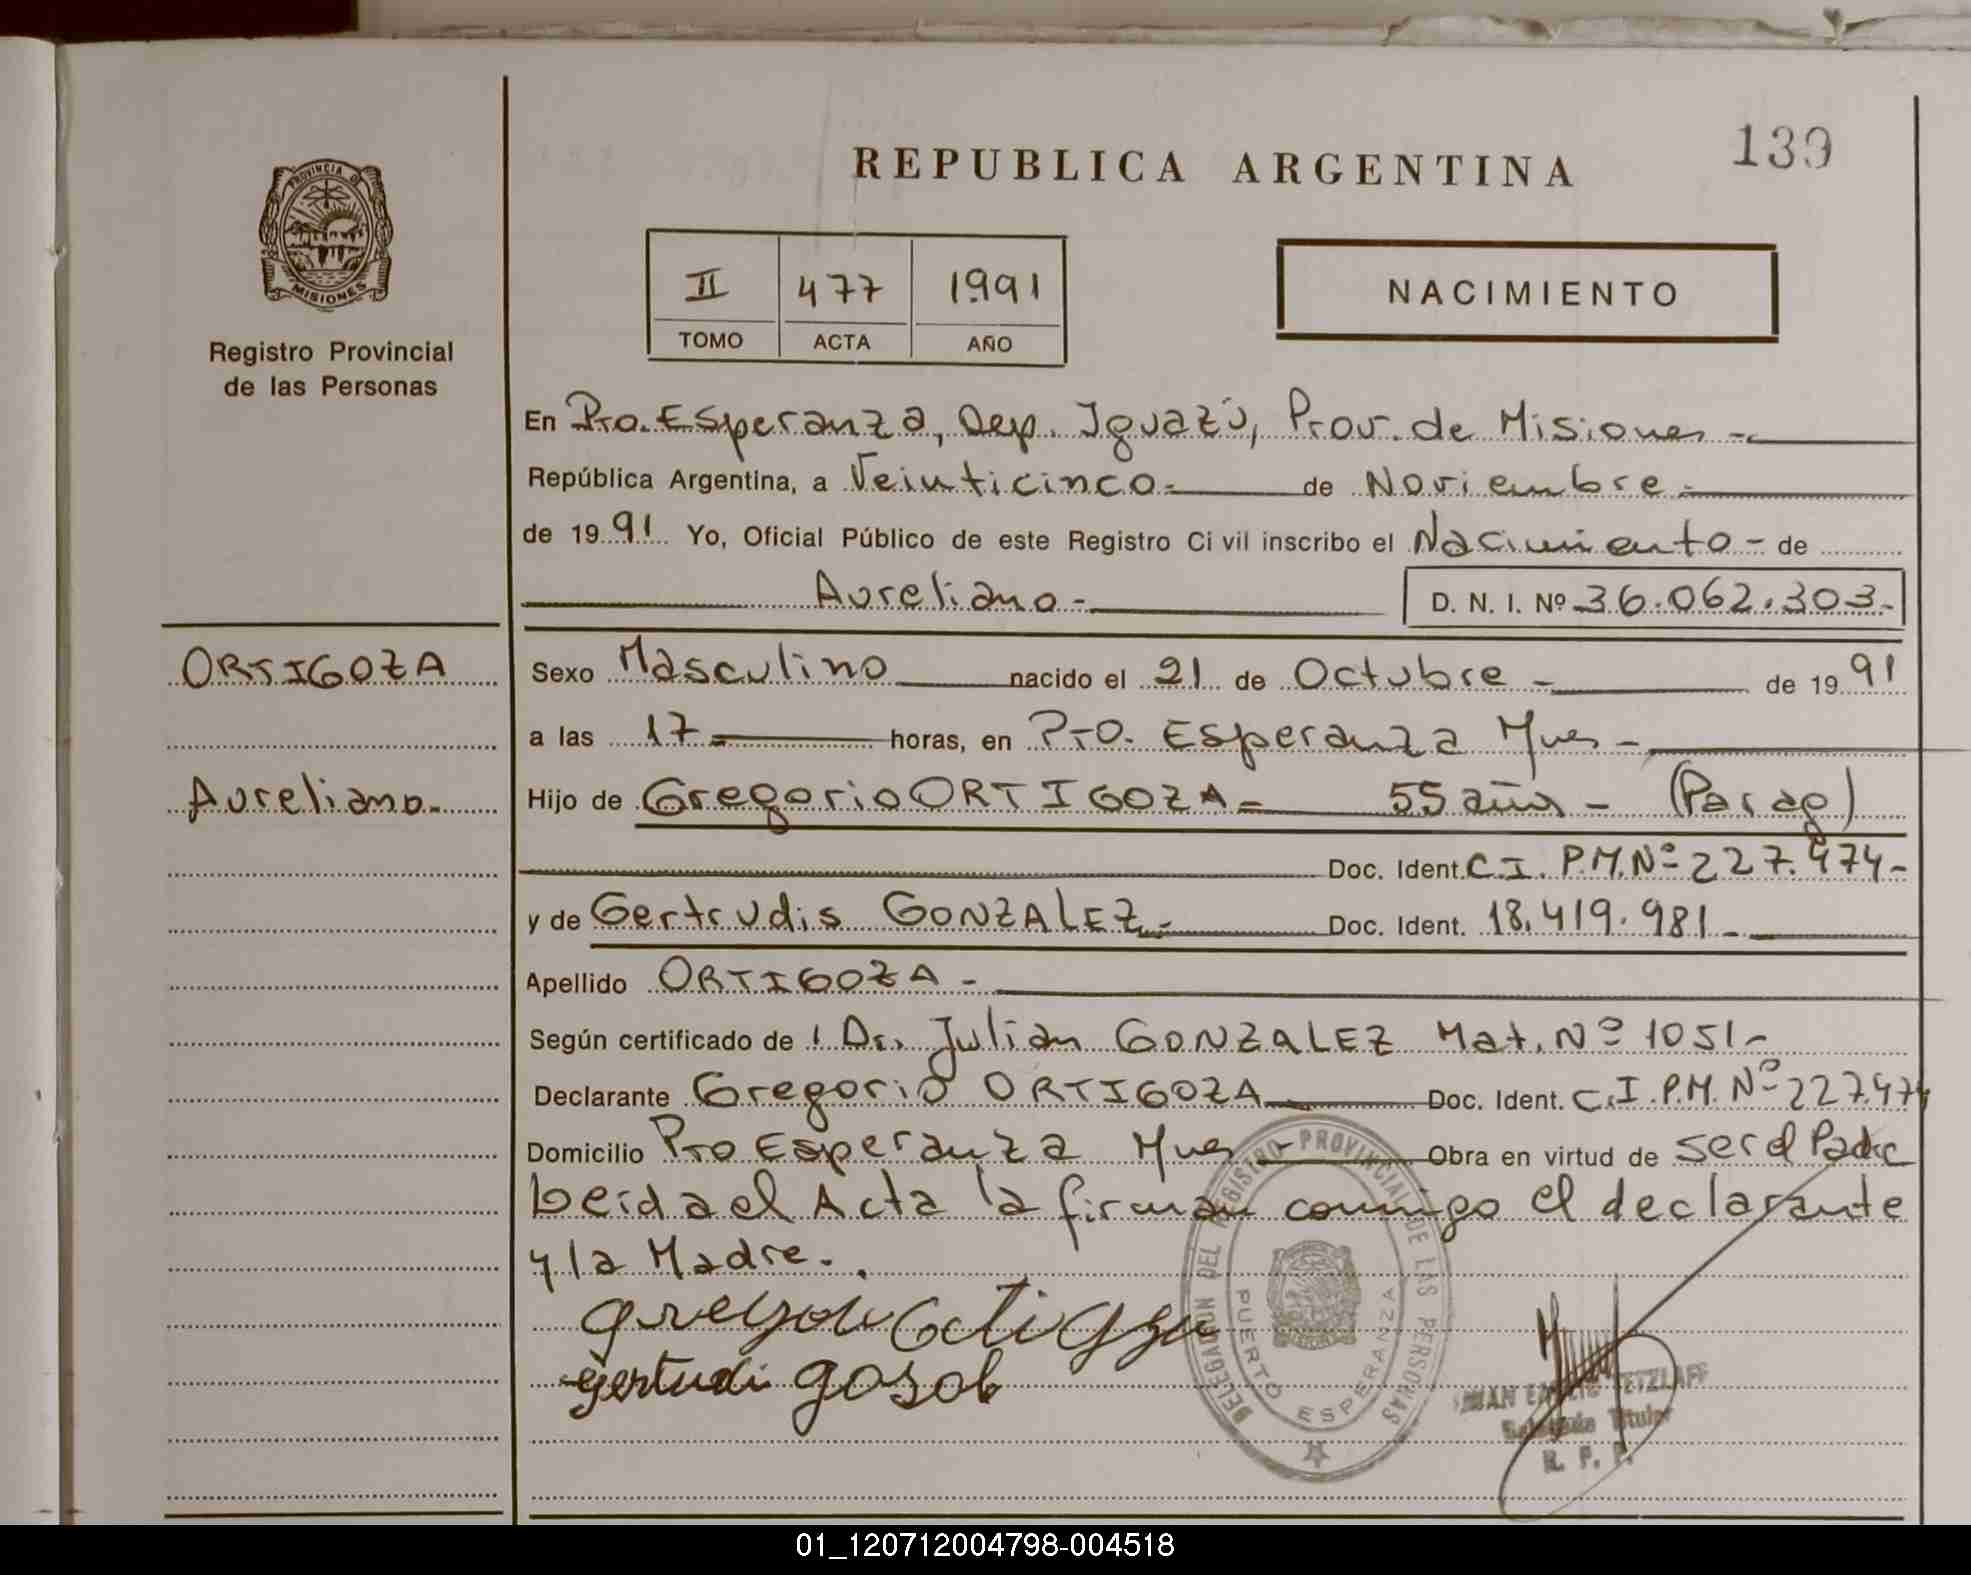 139
REPUBLICA ARGENTINA
PROVINCIA DE
MISIONES
Registro Provincial
de las Personas
II 477 1991
TOMO ACTA AÑO
NACIMIENTO
En Pto. Esperanza, Dep. Iguazú, Prov. de Misiones -
República Argentina, a Veinticinco - de Noviembre -
de 1991 Yo, Oficial Público de este Registro Civil inscribo el Nacimiento - de
Aureliano - D. N. I. Nº 36.062.303-
ORTIGOZA
Aureliano-
Sexo Masculino nacido el 21 de Octubre - de 1991
a las 17 = horas, en Pto. Esperanza Mnes -
Hijo de Gregorio ORTIGOZA = 55 años - (Parag)
Doc. Ident. C.I. P.M. Nº 227.474-
y de Gertrudis GONZALEZ - Doc. Ident. 18.419.981 -
Apellido ORTIGOZA -
Según certificado de l Dr. Julian GONZALEZ Mat. Nº 1051-
Declarante Gregorio ORTIGOZA Doc. Ident. C.I. P.M. Nº 227.474
Domicilio Pto Esperanza Mnes - Obra en virtud de ser el Padre
Leida el Acta la firman conmigo el declarante
y la Madre.
DELEGACION DEL REGISTRO PROVINCIAL DE LAS PERSONAS
PUERTO ESPERANZA
gertudi
Titular
R. P. P.
01_120712004798-004518